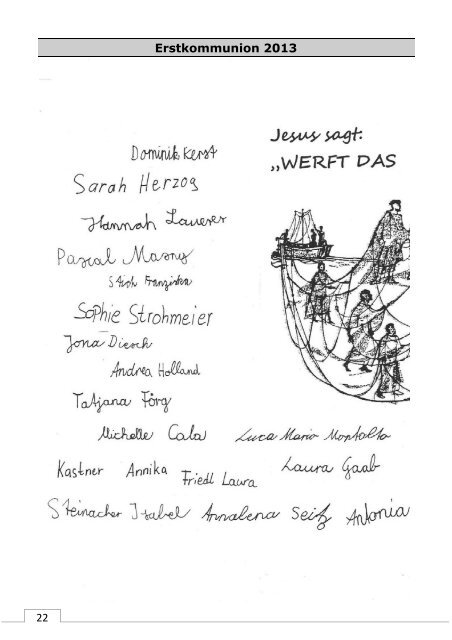 Erstkommunion 2013
Jesus sagt:
„WERFT DAS
Dominik Kerst
Sarah Herzog
Hannah Lauerer
Pascal Masny
Stich Franziska
Sophie Strohmeier
Jona Diesch
Andrea Holland
Tatjana Förg
Michelle Cala Luca Mario Montalto
Kastner Annika Friedl Laura Laura Gaab
Steinacher Isabel Annalena Seitz Antonia
22